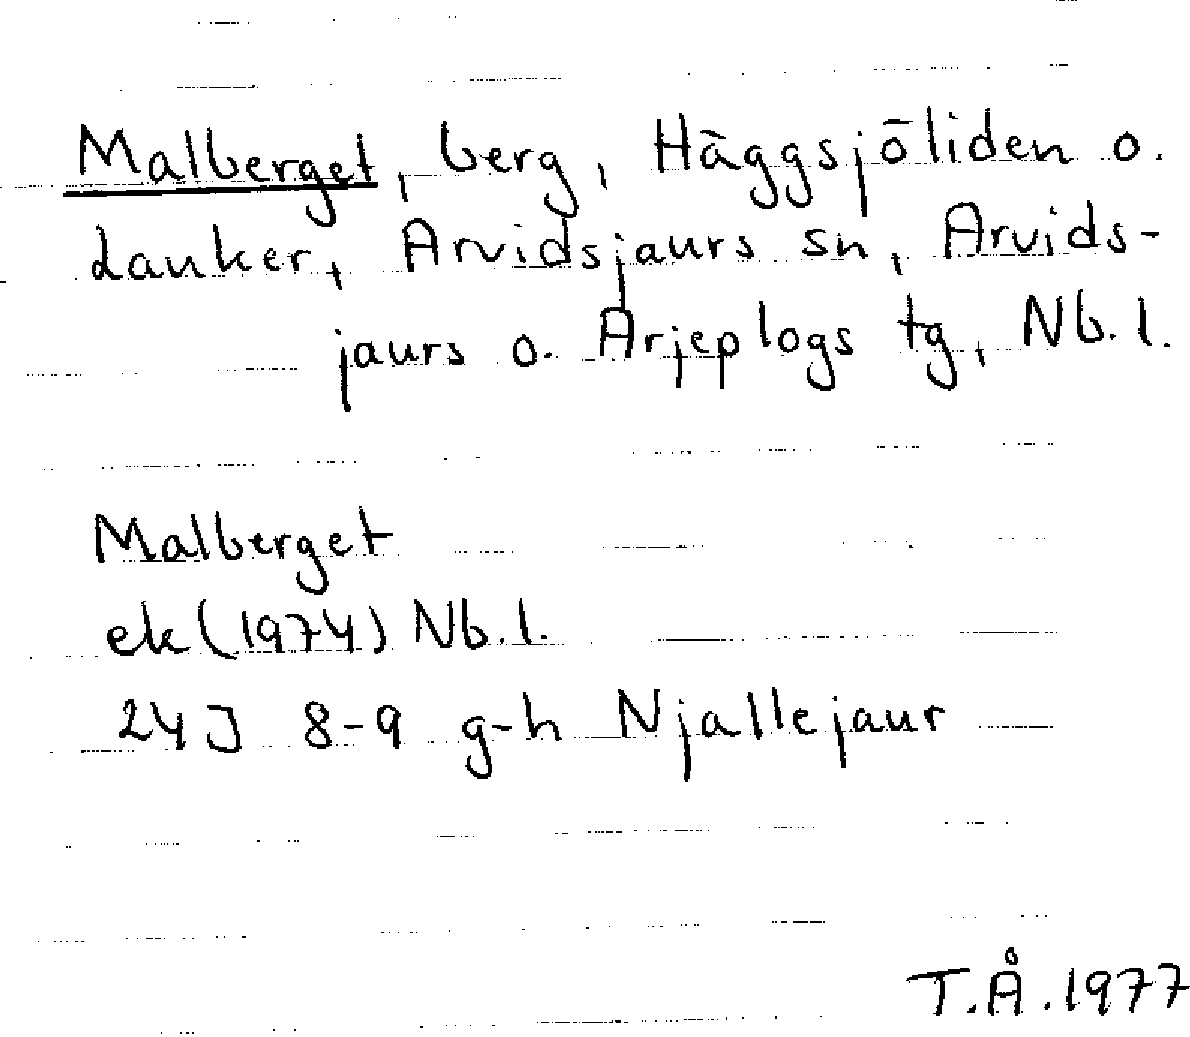 Malberget, berg, Häggsjöliden o.
Lauker, Arvidsjaurs sn, Arvids-
jaurs o. Arjeplogs tg, Nb.l.
Malberget
ek (1974) Nb.l.
24J 8-9 g-h Njallejaur
T.Å. 1977